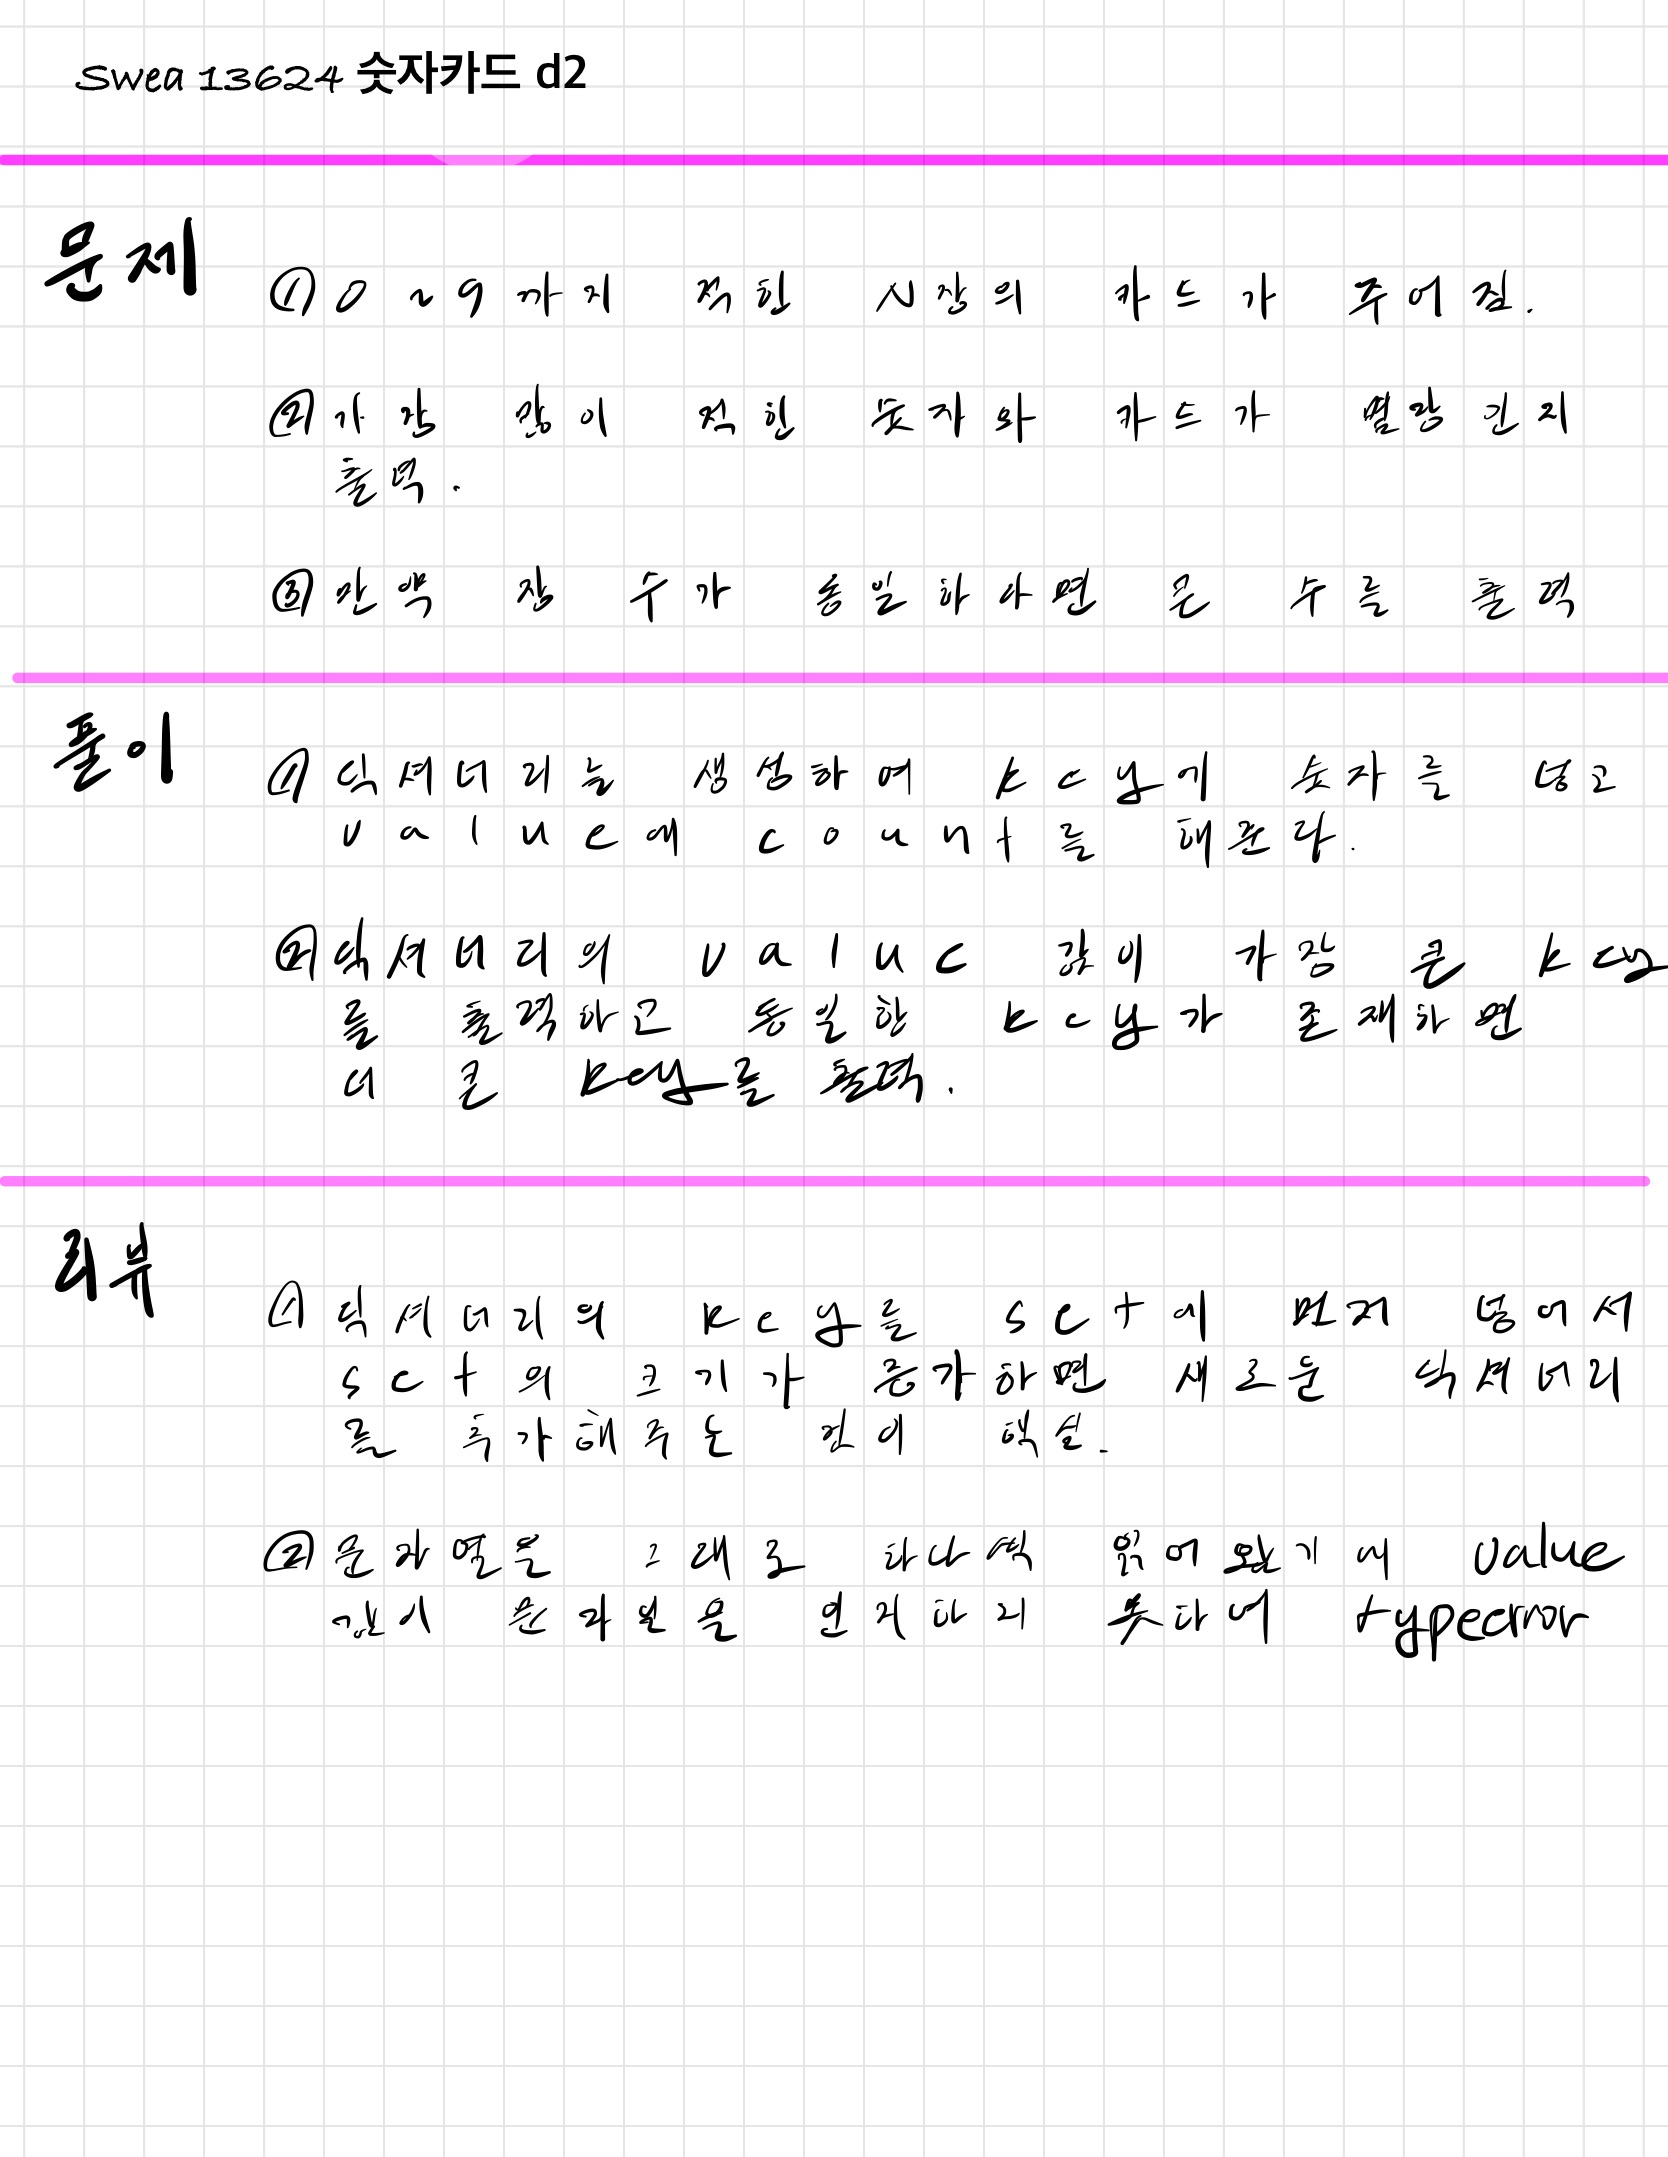 Swea 13624 숫자카드 d2
문제
① 0~9까지 적힌 N장의 카드가 주어짐.
② 가장 많이 적힌 숫자와 카드가 몇장인지
출력.
③ 만약 장 수가 동일하다면 큰 수를 출력
풀이
① 딕셔너리를 생성하여 key에 숫자를 넣고
value에 count를 해준다.
② 딕셔너리의 value 값이 가장 큰 key
를 출력하고 동일한 key가 존재하면
더 큰 key를 출력.
리뷰
① 딕셔너리의 key를 set에 먼저 넣어서
set의 크기가 증가하면 새로운 딕셔너리
를 추가해주는 것이 핵심.
② 문자열을 그대로 하나씩 읽어 왔기에 value
값이 문자인을 인지하지 못하여 typeerror